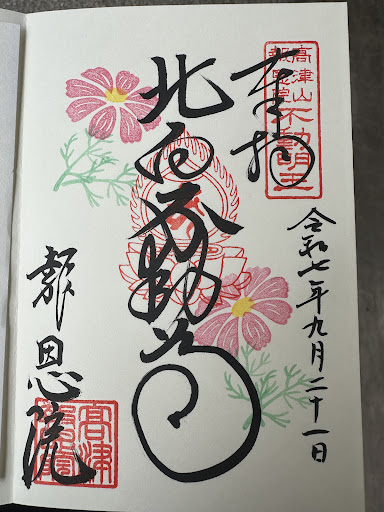 奉拝
高津山
報恩院
不動明王
令和七年九月二十一日
北向不動尊
報恩院
高津
報恩院